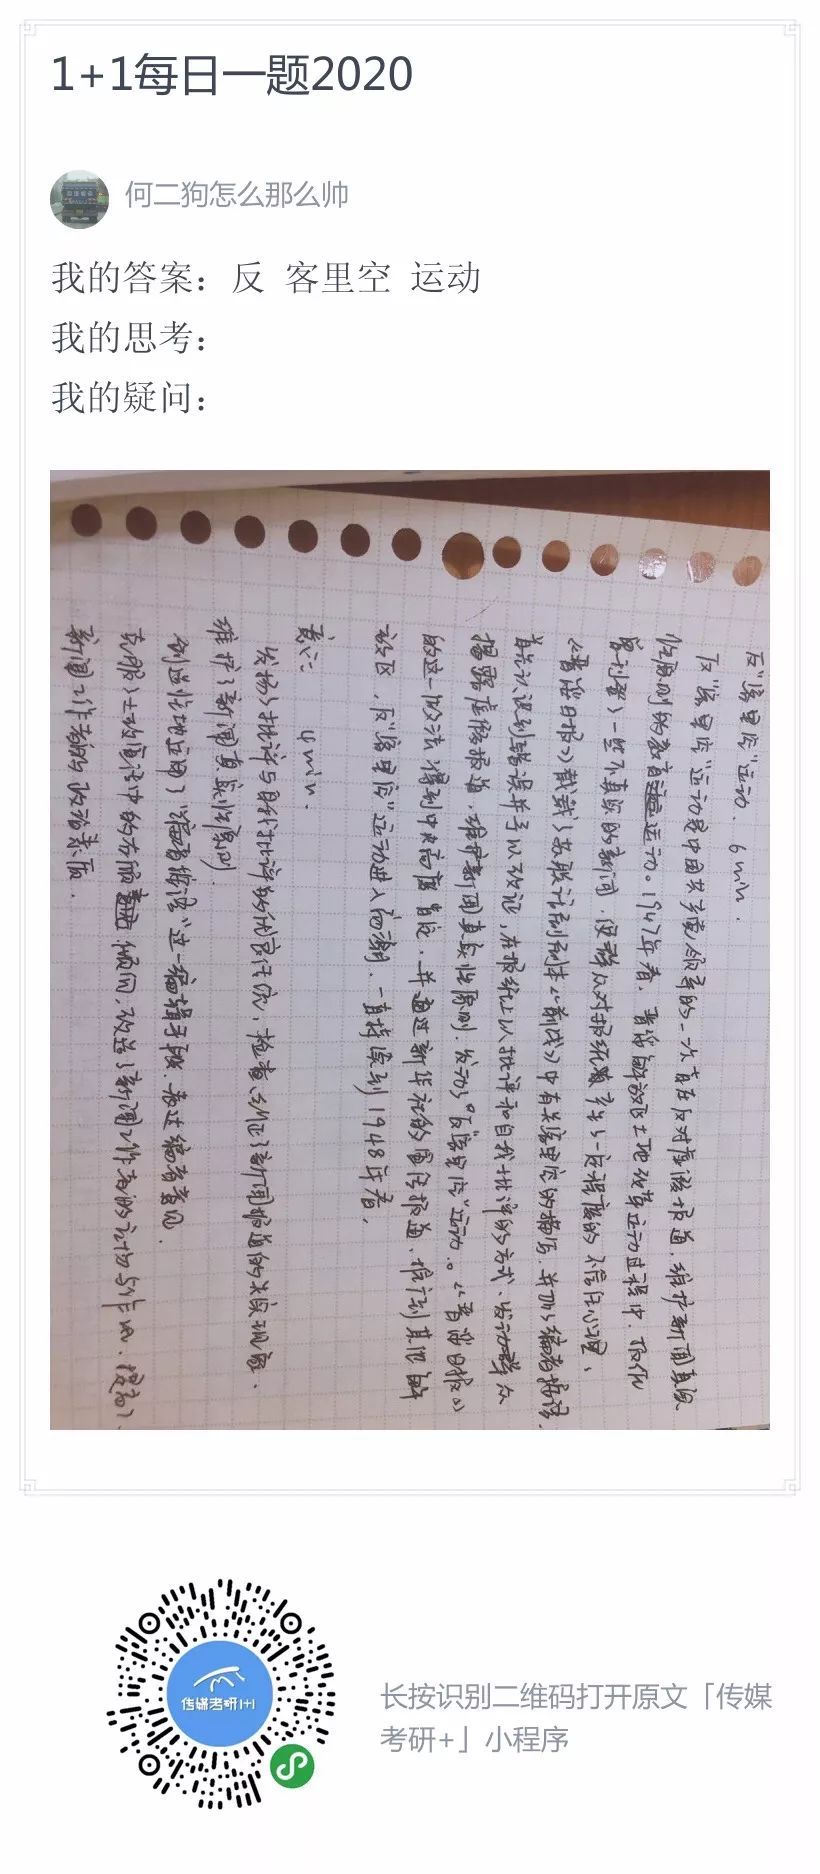 1+1每日一题2020
何二狗怎么那么帅
我的答案：反 客里空 运动
我的思考：
我的疑问：
反"客里空"运动. 6min.
反"客里空"运动是中国共产党领导的一次旨在反对虚假报道，维护新闻真实
性原则的教育运动。1947年春，晋绥解放区土地改革运动过程中，
刊著了一些不真实的新闻，使群众对报纸产生了一定程度的不信任心理，
《晋绥日报》戏剧《前线》中有关客里空的描写，并加了编者按语，
认识到错误并予以改正，在报纸上以批评和自我批评的方式，发动群众
揭露虚假报道，维护新闻真实性原则，发动了"反客里空"运动。《晋绥日报》
的这一做法得到中央高度肯定，并通过新华社的宣传报道，推行到其他解
放区，反"客里空"运动进入高潮，一直持续到1948年春，
意义： 4min.
发扬了批评与自我批评的优良传统，检查、纠正了新闻报道的失实现象，
维护了新闻真实性原则.
创造性地运用了"编者按语"这一编辑手段，表达编者意见.
克服了土改宣传中的右倾倾向，改进了新闻工作者的作风，提高了
新闻工作者的政治素质.
传媒考研1+1
长按识别二维码打开原文「传媒
考研+」小程序